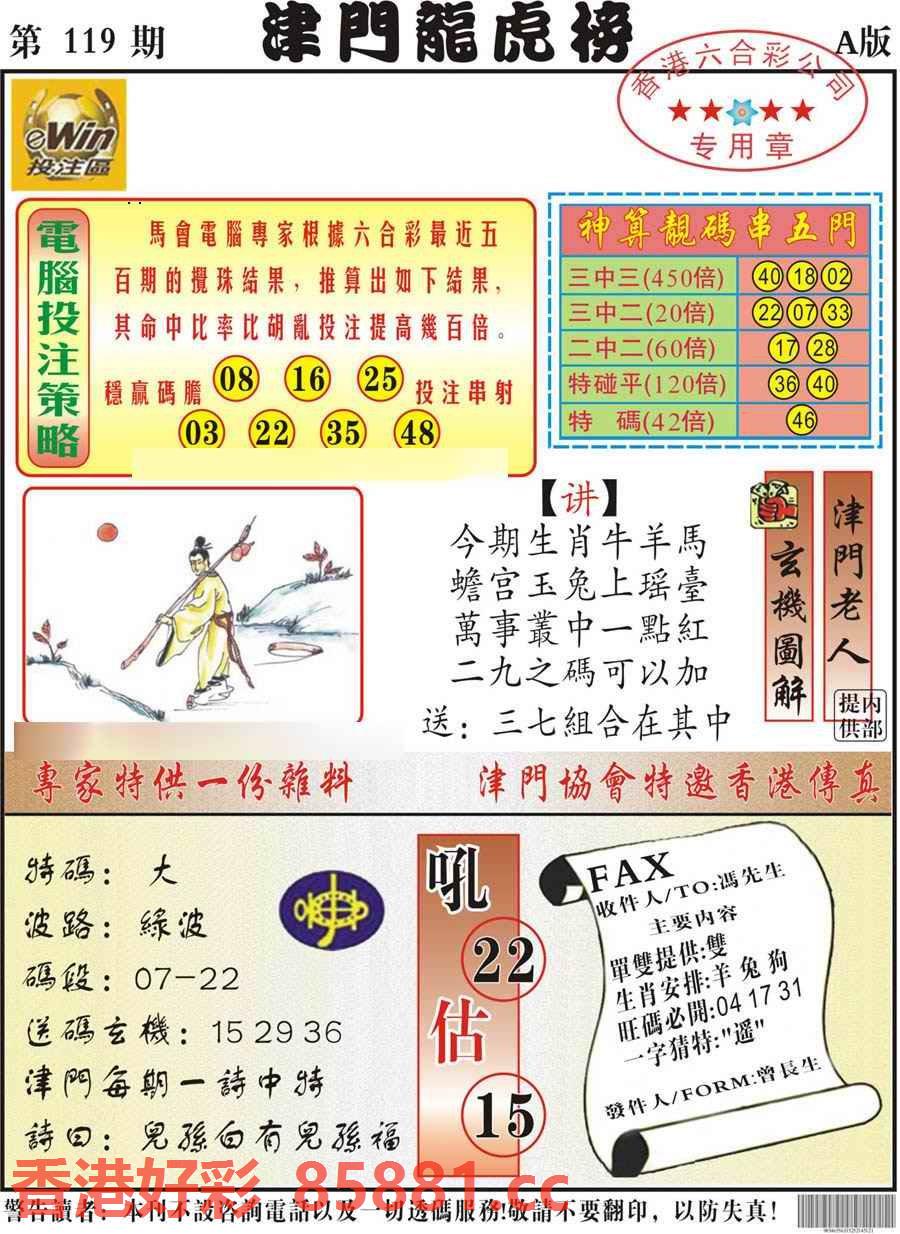 第 119 期
津門龍虎榜
A版
香港六合彩公司
专用章
eWin
投注區
電腦投注策略
馬會電腦專家根據六合彩最近五
百期的攪珠結果，推算出如下結果，
其命中比率比胡亂投注提高幾百倍。
穩贏碼膽 08 16 25 投注串射
03 22 35 48
神算靚碼串五門
三中三(450倍) 40 18 02
三中二(20倍) 22 07 33
二中二(60倍) 17 28
特碰平(120倍) 36 40
特 碼(42倍) 46
【讲】
今期生肖牛羊馬
蟾宫玉兔上瑶臺
萬事叢中一點紅
二九之碼可以加
送：三七組合在其中
玄機圖解
津門老人
提供
内部
專家特供一份雜料
津門協會特邀香港傳真
特碼：大
波路：綠波
碼段：07-22
送碼玄機：15 29 36
津門每期一詩中特
詩曰：兒孫自有兒孫福
吼
22
估
15
FAX
收件人/TO:馮先生
主要内容
單雙提供:雙
生肖安排:羊 兔 狗
旺碼必開:04 17 31
一字猜特:"遥"
發件人/FORM:曾長生
香港好彩 85881.cc
警告讀者：本刊不設咨詢電話以及一切透碼服務!敬請不要翻印，以防失真!